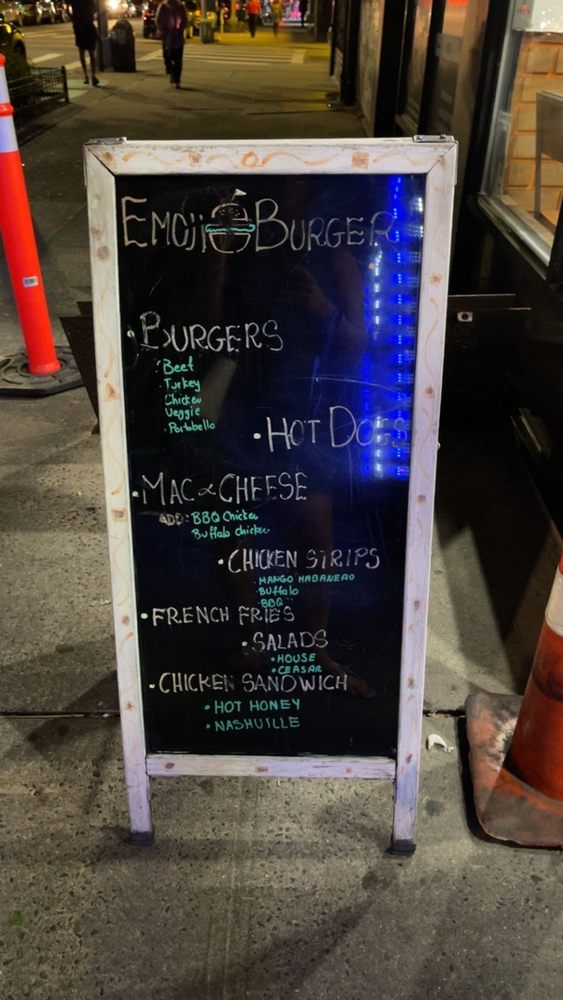 EMOJI BURGER
• BURGERS
• Beef
• Turkey
• Chicken
• Veggie
• Portobello
• HOT DOGS
• MAC & CHEESE
ADD: BBQ Chicken
Buffalo chicken
• CHICKEN STRIPS
• MANGO HABANERO
• Buffalo
• BBQ
• FRENCH FRIES
• SALADS
• HOUSE
• CEASAR
• CHICKEN SANDWICH
• HOT HONEY
• NASHVILLE